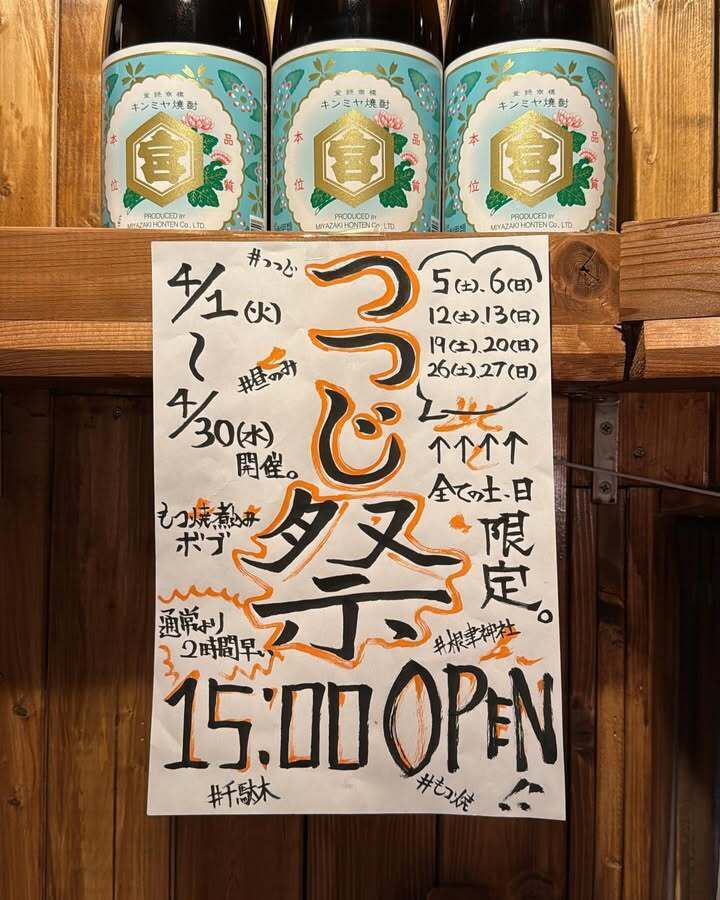 登録商標
キンミヤ焼酎
本位
品質
宮
PRODUCED BY
MIYAZAKI HONTEN Co., LTD.
登録商標
キンミヤ焼酎
本位
品質
宮
PRODUCED BY
MIYAZAKI HONTEN Co., LTD.
登録商標
キンミヤ焼酎
本位
品質
宮
PRODUCED BY
MIYAZAKI HONTEN Co., LTD.
つつじ祭
5(土)、6(日)
12(土)、13(日)
19(土)、20(日)
26(土)、27(日)
↑↑↑↑
全ての土、日
限定。
#根津神社
#つつじ
4/1(火)
〜
4/30(水)
開催。
#昼のみ
もつ焼煮込み
ボブ
通常より
2時間早い
15:00 OPEN!!
#千駄木
#もつ焼